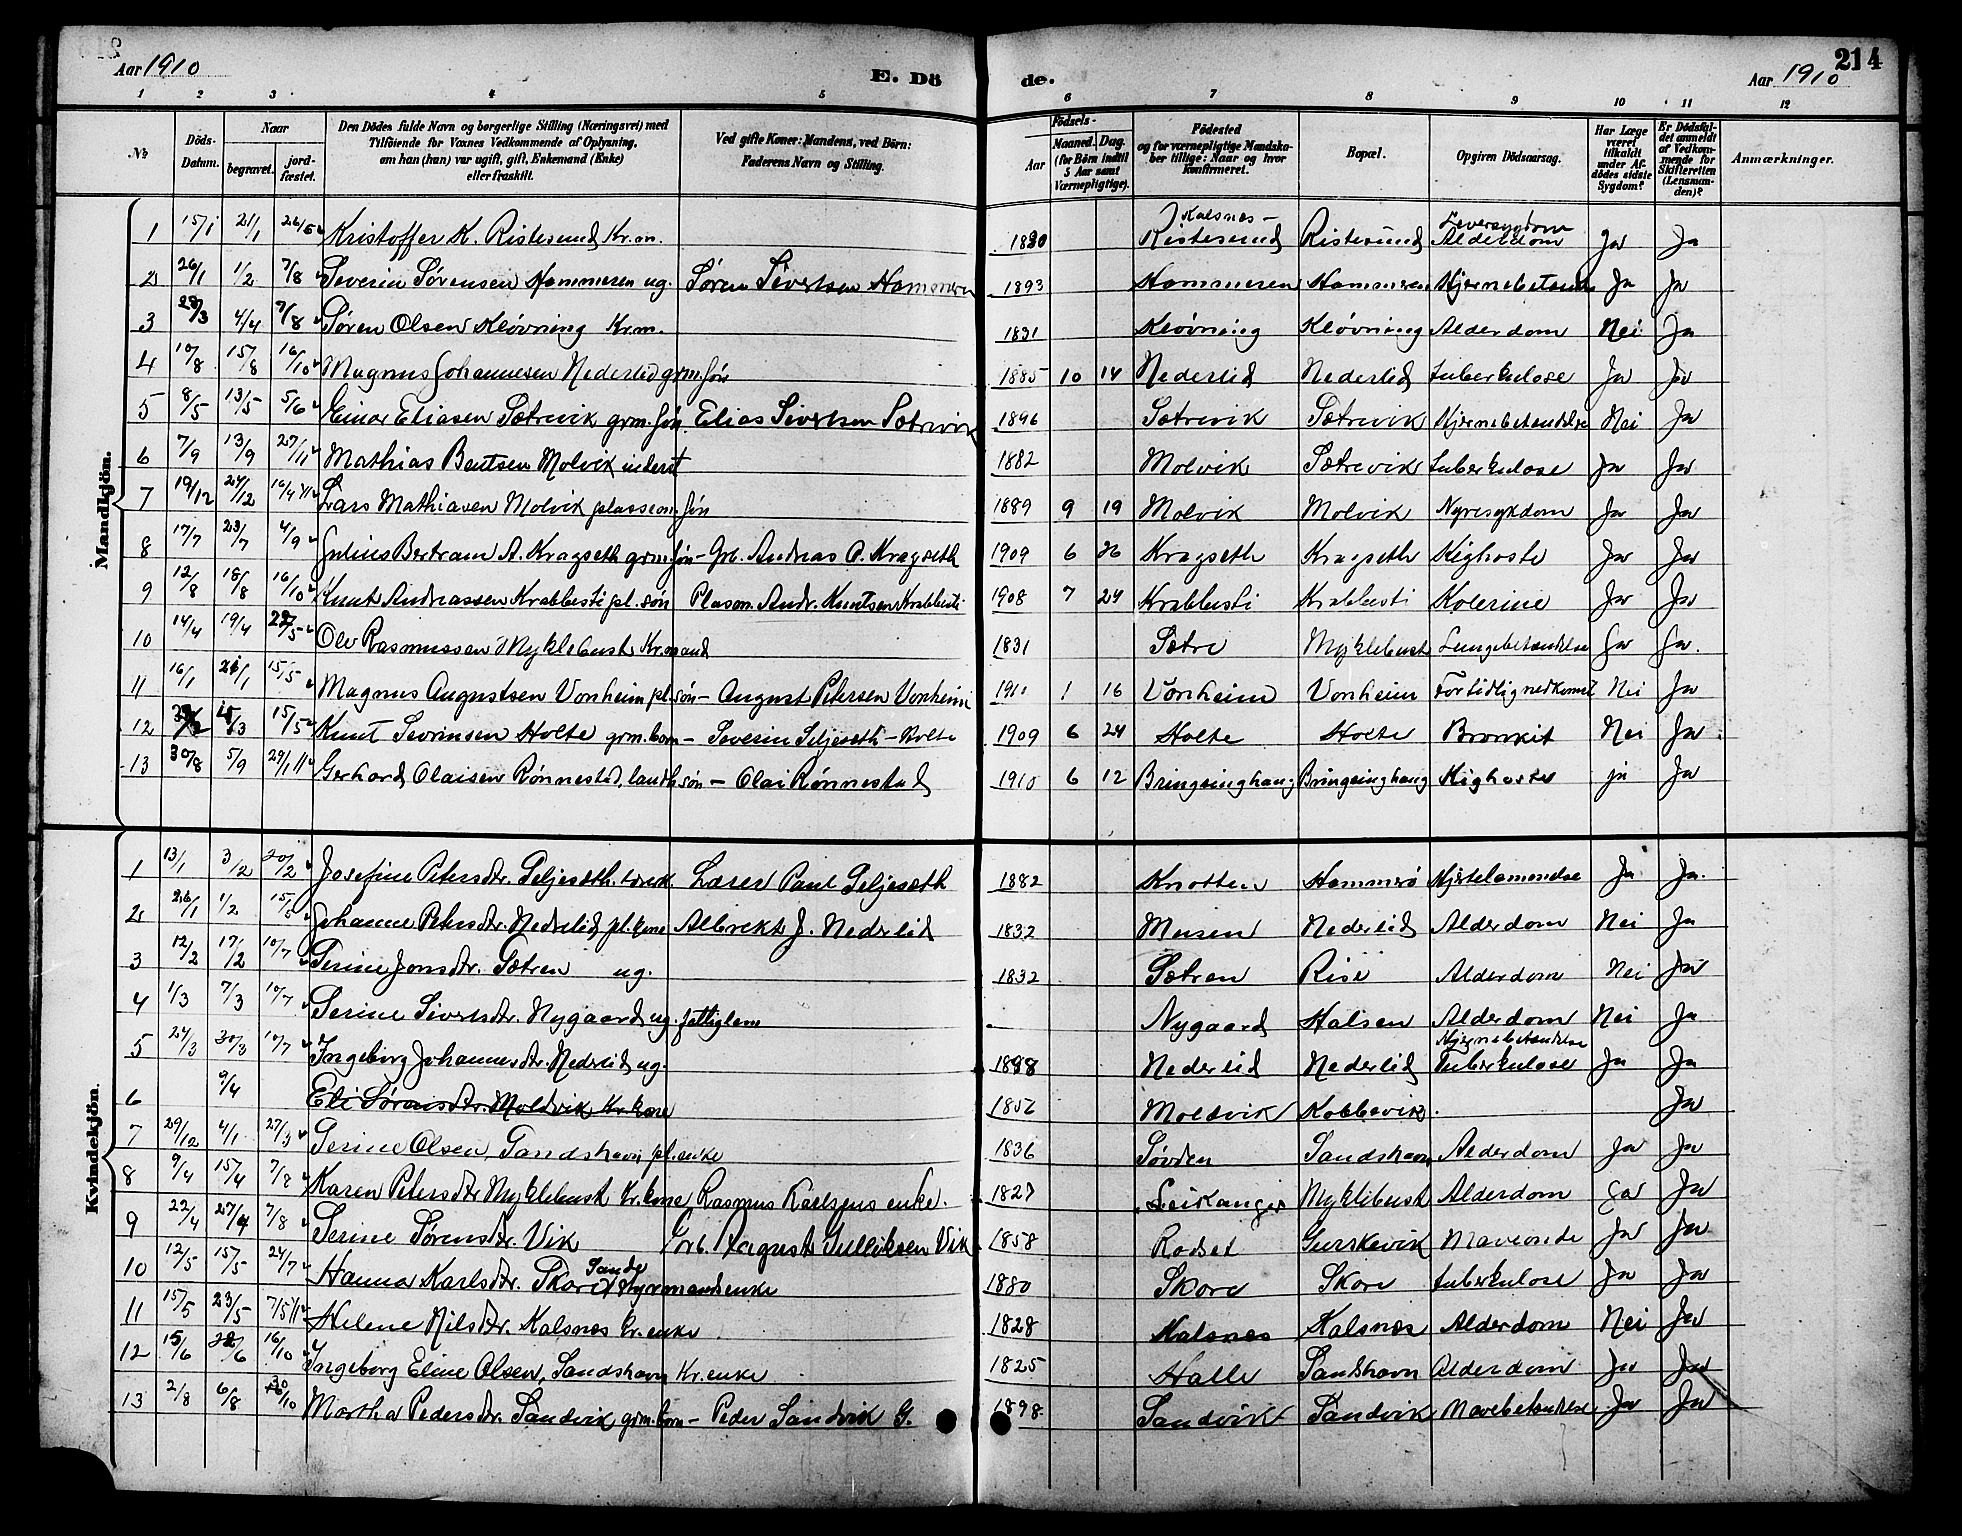 Aar 1910
E. Döde.
Aar 1910
214
1 2 3 4 5 6 7 8 9 10 11 12
No.
Döds-Datum.
Naar
begravet.
jord-fæstet.
Den Dödes fulde Navn og borgerlige Stilling (Næringsvei) med
Tilföiende for Voxnes Vedkommende af Oplysning,
om han (hun) var ugift, gift, Enkemand (Enke)
eller fraskilt.
Ved gifte Koner: Mandens, ved Börn:
Faderens Navn og Stilling.
Födsels-
Aar
Maaned. Dag.
(for Börn indtil
5 Aar samt
Værnepligtige).
Födested
og for værnepligtige Mandska-
ber tillige: Naar og hvor
konfirmeret.
Bopæl.
Opgiven Dödsaarsag.
Har Læge
været
tilkaldt
under Af-
dödes sidste
Sygdom?
Er Dödsfal-
det anmeldt
af Vedkom-
mende for
Skifteretten
(Lensman-
den)?
Anmærkninger.
Mandkjön.
1 15/1 21/1 26/5 Kristoffer K. Ristesund Kr.m. 1830 Kalsnes - Ristesund Ristesund Leversygdom Alderdom Ja Ja
2 26/1 1/2 7/8 Severin Sørensen Hammeren ug. Søren Sivertsen Hammeren 1893 Hammeren Hammeren Hjernebetænd Ja Ja
3 28/3 4/4 7/8 Søren Olsen Kløvning Kr.m. 1831 Kløvning Kløvning Alderdom Nei Ja
4 10/8 15/8 16/10 Magnus Johannesen Nederlid grm. søn 1885 10 14 Nederlid Nederlid Tuberkulose Ja Ja
5 8/5 13/5 5/6 Einar Eliasen Sætrevik grm. søn Elias Sivertsen Sætrevik 1896 Sætrevik Sætrevik Hjernebetændelse Nei Ja
6 7/9 13/9 27/11 Mathias Bentsen Molvik inderst 1882 Molvik Sætrevik Tuberkulose Ja Ja
7 19/12 24/12 16/4 11 Lars Mathiasen Molvik plassm. søn 1889 9 19 Molvik Molvik Nyresykdom Ja Ja
8 17/7 23/7 4/9 Julius Bertram A. Kragseth grm. søn - Grb. Andreas O. Kragseth 1909 6 26 Kragseth Kragseth Kighoste Ja Ja
9 12/8 18/8 16/10 Knut Andreassen Krabbesti pl. søn Plassm. Andr. Knutsen Krabbesti 1908 7 24 Krabbesti Krabbesti Kolerine Ja Ja
10 14/4 19/4 22/5 Ole Rasmussen Myklebust Kr.mand 1831 Sætre Myklebust Lungebetændelse Ja Ja.
11 16/1 21/1 15/5 Magnus Augustsen Vonheim pl. søn - August Petersen Vonheim 1910 1 16 Vonheim Vonheim For tidlig nedkomst Nei Ja
12 15/3 15/5 Knut Severinsen Holte grm. barn - Severin Seljeseth - Holte 1909 6 24 Holte Holte Bronkit Nei Ja
13 30/8 5/9 29/1 11 Gerhard Olaisen Rønnestad, landh. søn - Olai Rønnestad 1910 6 12 Bringsinghaug Bringsinghaug Kighoste ja Ja
Kvindekjön.
1 13/1 3/2 20/2 Josefine Petersdtr. Seljeseth. Lærer Paul Seljeseth 1882 Knotten Hammerø Ja Ja.
2 26/1 1/2 15/5 Johanne Petersdtr. Nederlid pl. kone Albrekt J. Nederlid 1832 Meisen Nederlid Alderdom Nei Ja
3 12/2 17/2 10/7 Serine Jonsdtr. Sætren ug. 1832 Sætren Rise Alderdom Nei Ja
4 1/3 7/3 10/7 Serine Sivertsdtr. Nygaard ug. fattiglem - Nygaard Halsen Alderdom Nei Ja
5 24/3 30/3 10/7 Ingeborg Johannesdtr. Nederlid ug. 1898 Nederlid Nederlid Hjernebetændelse Tuberkulose Ja Ja
6 9/4 Eli Sørensdtr. Moldvik Kr. kone 1856 Moldvik Kobbevik Ja
7 29/12 4/1 27/3 Serine Olsen, Sandshavn pl. enke 1836 Søvden Sandshavn Alderdom Ja Ja
8 9/4 15/4 7/8 Karen Petersdtr Myklebust Kr. kone Rasmus Karlsens enke. 1827 Leikanger Myklebust Alderdom Ja Ja
9 22/4 27/4 7/8 Serine Sørensdtr. Vik Grb. August Gulliksen Vik 1858 Rodset Gurskevik Maveonde Ja Ja
10 12/5 15/5 24/7 Hanna Karlsdtr. Skore Sande styrmandsenke 1880 Skore Skore Tuberkulose Ja Ja
11 15/5 23/5 7/5 11 Helene Nilsdtr. Kalsnes Gr. enke 1828 Kalsnes Kalsnes Alderdom Nei Ja
12 15/6 22/6 16/10 Ingeborg Eline Olsen, Sandshavn Kr. enke 1825 Halle Sandshavn Alderdom Ja Ja
13 2/8 6/8 30/10 Martha Pedersdtr. Sandvik grm. barn - Peder Sandvik G. 1898 Sandvik Sandvik Mavebetændelse Ja Ja